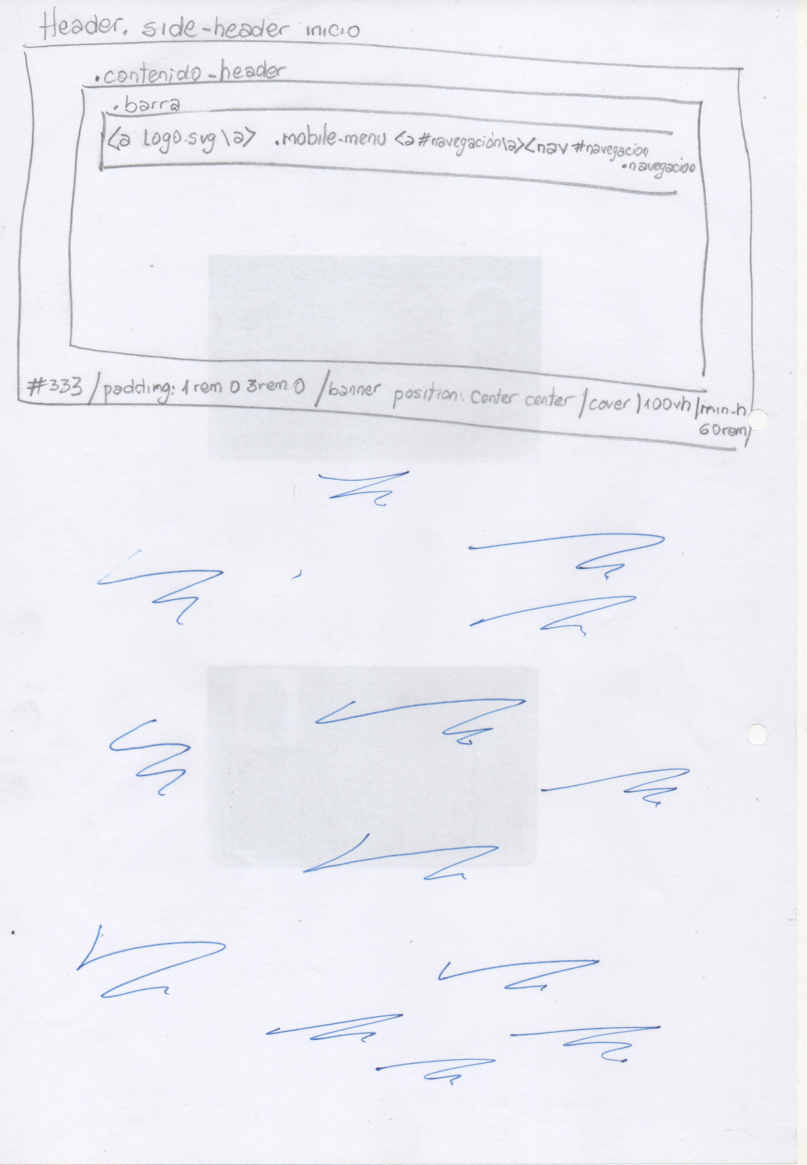 Header. side-header inicio
.contenido-header
.barra
<a Logo.svg \a> .mobile-menu <a #navegación\a><nav #navegacion
.navegacion
#333 / padding: 1rem 0 3rem 0 / banner position: center center / cover / 100vh / min-h
60rem/